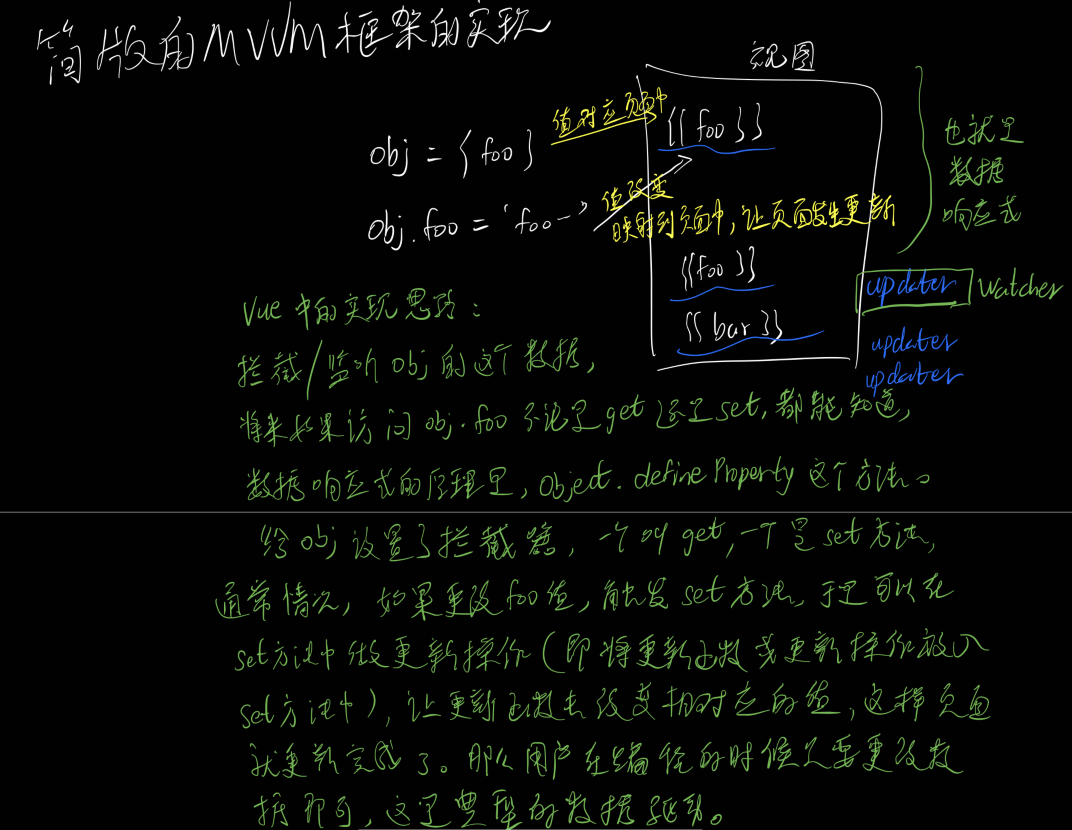 简版的MVVM框架的实现
视图
obj = {foo}
值对应页面中
{{foo}}
也就是
数据
响应式
值改变
obj.foo = 'foo一'
映射到页面中，让页面发生更新
{{foo}}
updater
watcher
{{bar}}
updater
updater
Vue中的实现思路：
拦截/监听obj的这个数据，
将来如果访问obj.foo不论是get还是set，都能知道，
数据响应式的原理是，Object.defineProperty这个方法。
给obj设置了拦截器，一个叫get，一个是set方法，
通常情况，如果更改foo值，触发set方法，于是可以在
set方法中做更新操作（即将更新函数或更新操作放入
set方法中），让更新函数去改变相对应的值，这样页面
就更新完成了。那么用户在编程的时候只需要更改数
据即可，这是典型的数据驱动。